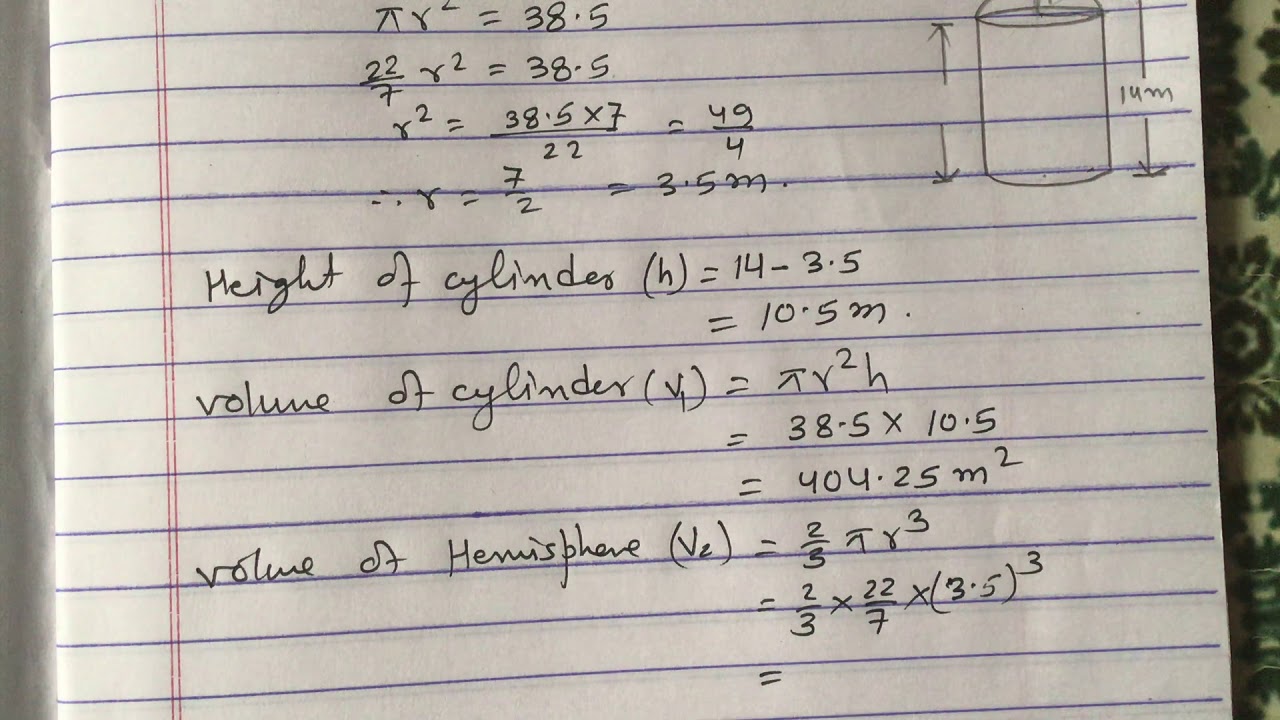 πr² = 38.5
22/7 r² = 38.5
r² = 38.5 × 7 / 22 = 49/4
14m
∴ r = 7/2 = 3.5 m.
Height of cylinder (h) = 14 - 3.5
= 10.5 m.
volume of cylinder (V₁) = πr²h
= 38.5 × 10.5
= 404.25 m²
volume of Hemisphere (V₂) = 2/3 πr³
= 2/3 × 22/7 × (3.5)³
=